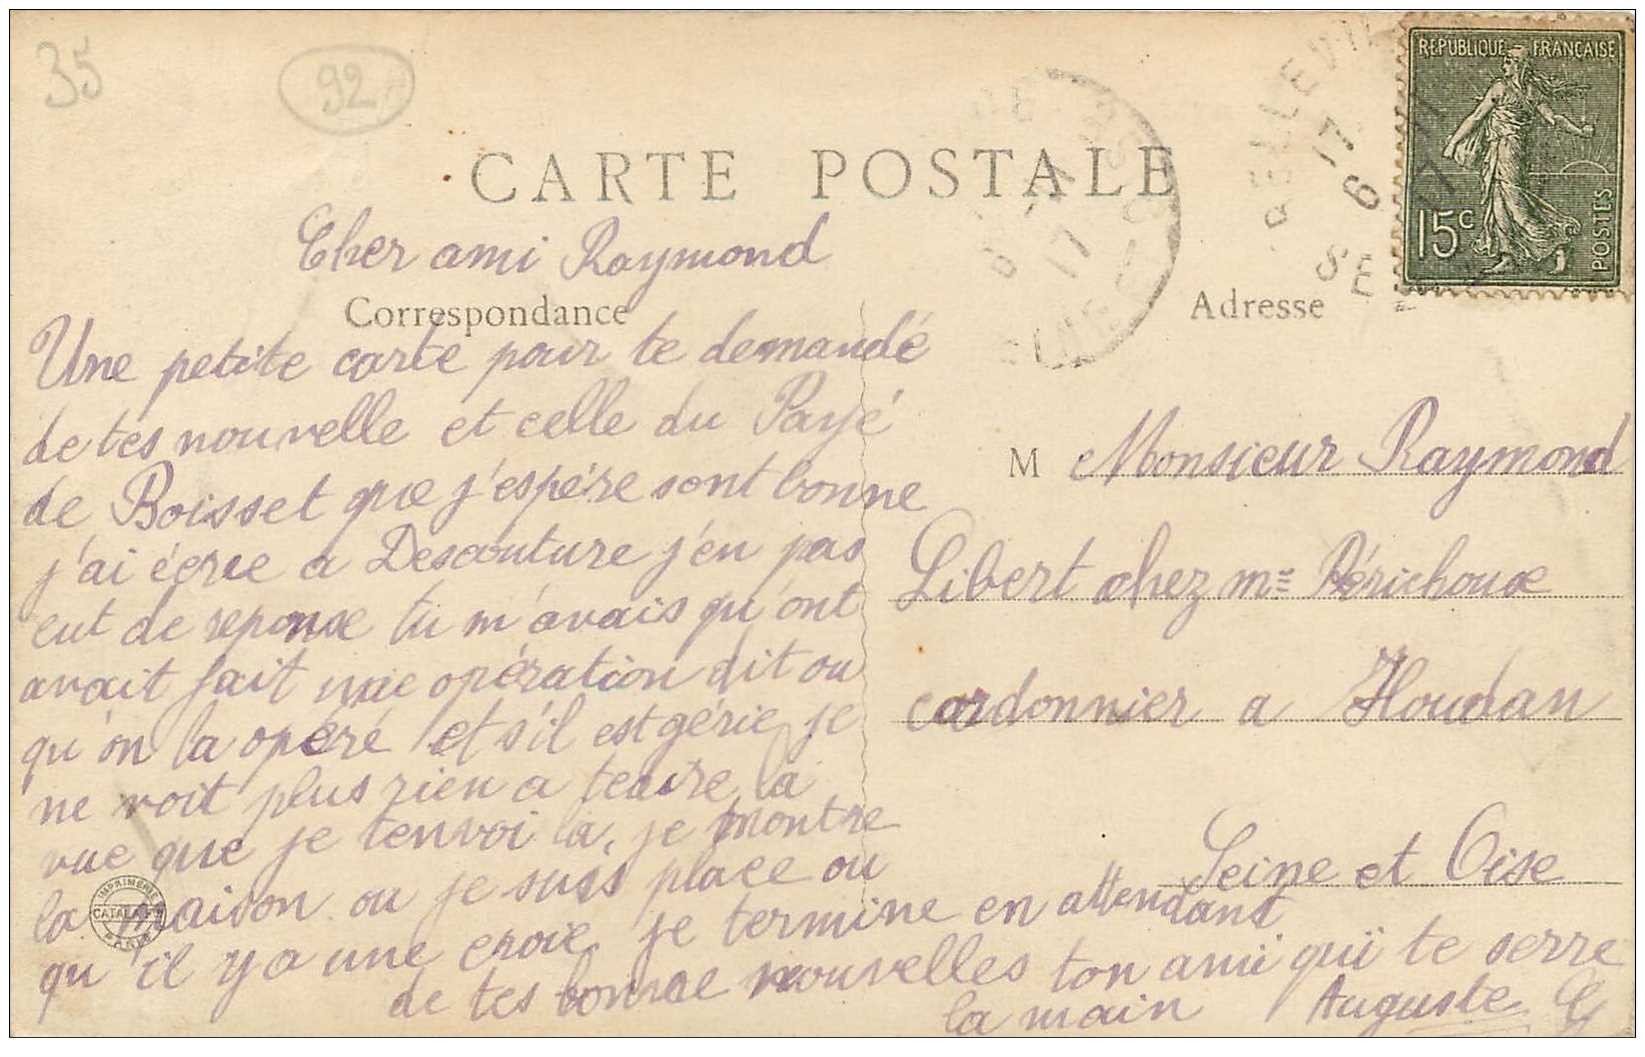 35
92
CARTE POSTALE
RÉPUBLIQUE FRANÇAISE
15c
POSTES
17
6
17
Cher ami Raymond
Correspondance
Adresse
Une petite carte pour te demandé
de tes nouvelle et celle du Payé
de Boisset que j'espére sont bonne
j'ai écrie a Descouture j'en pas
eut de reponse tu m'avais qu'ont
avait fait une opération dit ou
qu'on la opéré et s'il est gérie je
ne voit plus rien a te dire la
vue que je tenvoi la, je montre
la maison ou je suis place ou
qu'il y a une croie, je termine en attendant
de tes bonne nouvelles ton ami qui te serre
la main Auguste G
M Monsieur Raymond
Libert chez me Périchoux
cordonnier a Houdan
Seine et Oise
IMPRIMERIE
CATALA Fres
PARIS